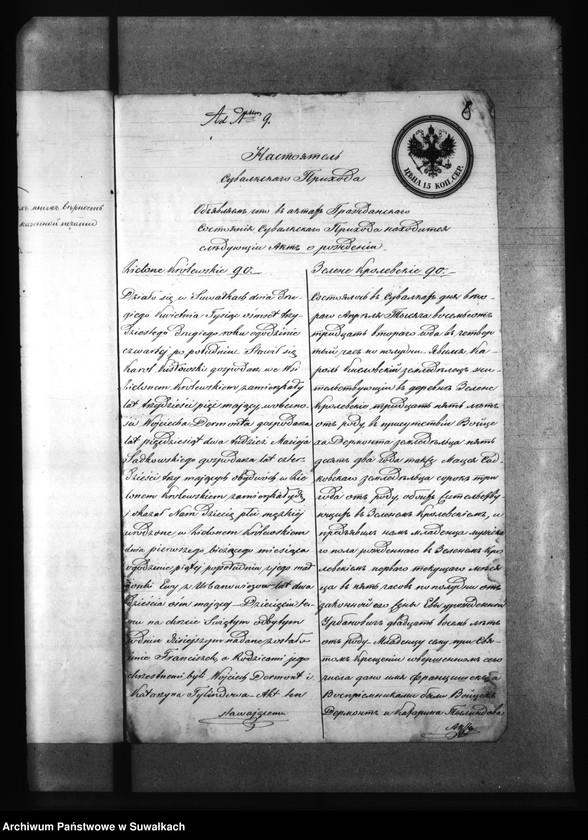 8
Ad Nrum 9.
ЦѢНА 15 КОП. СЕР.
Настоятель
Сувалкскаго Прихода
Объявляетъ что въ актахъ Гражданскаго
Состоянія Сувалкскаго Прихода находится
слѣдующій Актъ о рожденіи
Zielone Królewskie 90.
Działo się w Suwałkach dnia Dru-
giego Kwietnia Tysiąc ośmset trzy-
dziestego drugiego roku o godzinie
czwarty po południu. Stawił się
Karol Kisłowski gospodarz we Wsi
Zielonem Królewskiem zamieszkały
lat trzydzieści pięć mający, w obecno-
ści Wojciecha Dormonta gospodarza
lat pięćdziesiąt dwa tudzież Macieja
Sadkowskiego gospodarza lat czter-
dzieści trzy mających obydwóch w Zie-
lonem Królewskiem zamieszkałych
i okazał Nam Dziecię płci męzkiej
urodzone w Zielonem Królewskiem
dnia pierwszego bieżącego miesiąca
o godzinie piąty popołudniu z jego mał-
żonki Ewy z Urbanowiczów lat dwa-
dzieścia ośm mający Dziecięciu te-
mu na chrzcie Świętym odbytym
w dniu dzisiejszym nadane zostało
imie Franciszek, a Rodzicami jego
chrzestnemi byli Wojciech Dormont i
Katarzyna Tylindowa Akt ten
stawającemu
Зелене Кролевскіе 90.
Состоялось въ Сувалкахъ дня вто-
раго Апрѣля Тысяча восемьсотъ
тридцать втораго года въ четвер-
тый часъ по полудни. Явился Ка-
роль Кисловскій земледѣлецъ жи-
тельствующій въ деревнѣ Зелене
Кролевске тридцать пять лѣтъ
отъ роду въ присутствіи Войце-
ха Дермонта земледѣльца пять-
десятъ два года также Мацея Сад-
ковскаго земледѣльца сорокъ три
года отъ роду, обоихъ жительству-
ющихъ въ Зеленомъ Кролевскемъ, и
предъявилъ намъ Младенца мужска-
го пола рожденнаго въ Зеленомъ Кро-
левскемъ перваго текущаго мѣся-
ца въ пять часовъ по полудни отъ
законной его жены Евы урожденной
Урбановичъ двадцать восемь лѣтъ
отъ роду. Младенцу сему при Свя-
томъ крещеніи совершенномъ сего
числа дано имя Францишекъ а
Воспріемниками были Войцехъ
Дермонтъ и Катарина Тылиндова
Актъ
Archiwum Państwowe w Suwałkach